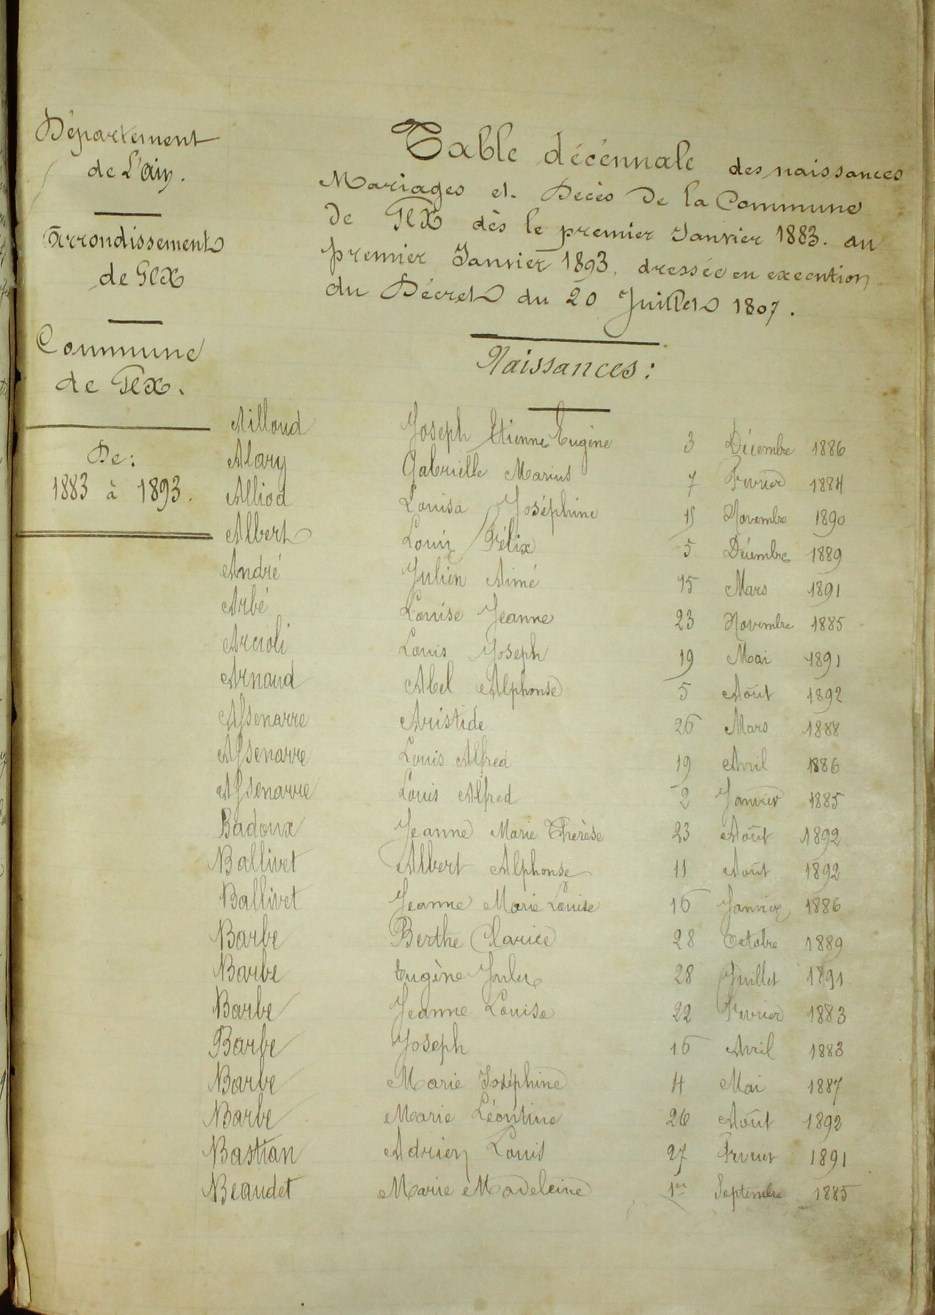 Département
de L'Ain.
Arrondissement
de Gex
Commune
de Gex.
De:
1883 à 1893.
Table décennale des naissances
Mariages et Décès De la Commune
De Gex dès le premier Janvier 1883. au
premier Janvier 1893, dressée en execution
du Décret du 20 Juillet 1807.
Naissances:
Ailloud Joseph Etienne Eugène 3 Décembre 1886
Alary Gabrielle Marius 7 Fevrier 1884
Alliod Louisa Joséphine 15 Novembre 1890
Albert Louis Félix 5 Décembre 1889
André Julien Aimé 15 Mars 1891
Arbé Louise Jeanne 23 Novembre 1885
Louis Joseph 19 Mai 1891
Arnaud Abel Alphonse 5 Août 1892
Assenarre Aristide 26 Mars 1888
Assenarre Louis Alfred 19 Avril 1886
Assenarre Louis Alfred 2 Janvier 1885
Badoux Jeanne Marie Thérèse 23 Août 1892
Ballivet Albert Alphonse 11 Août 1892
Ballivet Jeanne Marie Louise 16 Janvier 1886
Barbe Berthe Clarice 28 Octobre 1889
Barbe Eugène Jules 28 Juillet 1891
Barbe Jeanne Louise 22 Fevrier 1883
Barbe Joseph 16 Avril 1883
Barbe Marie Joséphine 4 Mai 1887
Barbe Marie Léontine 26 Août 1892
Bastian Adrien Louis 27 Fevrier 1891
Beaudet Marie Madeleine 1er Septembre 1885